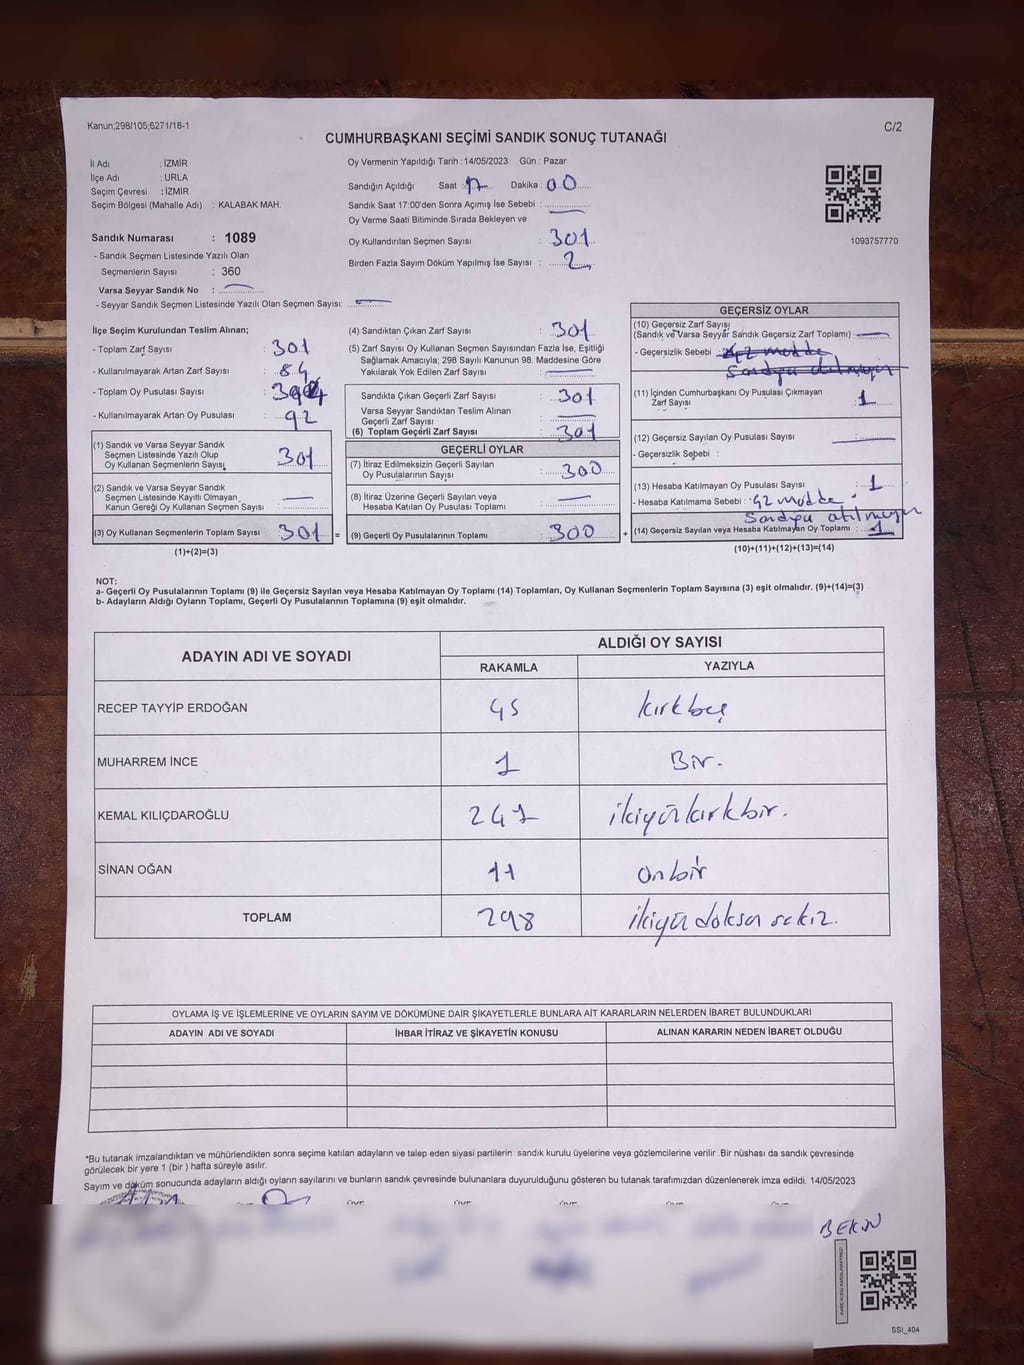 Kanun;298/105;6271/16-1
C/2
CUMHURBAŞKANI SEÇİMİ SANDIK SONUÇ TUTANAĞI
İl Adı : İZMİR
İlçe Adı : URLA
Seçim Çevresi : İZMİR
Seçim Bölgesi (Mahalle Adı) : KALABAK MAH.
Sandık Numarası : 1089
- Sandık Seçmen Listesinde Yazılı Olan
Seçmenlerin Sayısı : 360
Varsa Seyyar Sandık No :
- Seyyar Sandık Seçmen Listesinde Yazılı Olan Seçmen Sayısı:
Oy Vermenin Yapıldığı Tarih : 14/05/2023 Gün : Pazar
Sandığın Açıldığı Saat : 17 Dakika : 00
Sandık Saat 17:00'den Sonra Açımış İse Sebebi :
Oy Verme Saati Bitiminde Sırada Bekleyen ve
Oy Kullandırılan Seçmen Sayısı : 301
Birden Fazla Sayım Döküm Yapılmış İse Sayısı : 2
1093757770
İlçe Seçim Kurulundan Teslim Alınan;
- Toplam Zarf Sayısı : 301
- Kullanılmayarak Artan Zarf Sayısı : 84
- Toplam Oy Pusulası Sayısı :
- Kullanılmayarak Artan Oy Pusulası : 92
(1) Sandık ve Varsa Seyyar Sandık
Seçmen Listesinde Yazılı Olup
Oy Kullanan Seçmenlerin Sayısı : 301
(2) Sandık ve Varsa Seyyar Sandık
Seçmen Listesinde Kayıtlı Olmayan
Kanun Gereği Oy Kullanan Seçmen Sayısı :
(3) Oy Kullanan Seçmenlerin Toplam Sayısı : 301 =
(1)+(2)=(3)
(4) Sandıktan Çıkan Zarf Sayısı : 301
(5) Zarf Sayısı Oy Kullanan Seçmen Sayısından Fazla İse, Eşitliği
Sağlamak Amacıyla; 298 Sayılı Kanunun 98. Maddesine Göre
Yakılarak Yok Edilen Zarf Sayısı :
Sandıkta Çıkan Geçerli Zarf Sayısı : 301
Varsa Seyyar Sandıktan Teslim Alınan
Geçerli Zarf Sayısı :
(6) Toplam Geçerli Zarf Sayısı : 301
GEÇERLİ OYLAR
(7) İtiraz Edilmeksizin Geçerli Sayılan
Oy Pusulalarının Sayısı : 300
(8) İtiraz Üzerine Geçerli Sayılan veya
Hesaba Katılan Oy Pusulası Toplamı :
(9) Geçerli Oy Pusulalarının Toplamı : 300 +
GEÇERSİZ OYLAR
(10) Geçersiz Zarf Sayısı
(Sandık ve Varsa Seyyar Sandık Geçersiz Zarf Toplamı) :
- Geçersizlik Sebebi : 42 madde
Sandığa atılmayan
(11) İçinden Cumhurbaşkanı Oy Pusulası Çıkmayan
Zarf Sayısı : 1
(12) Geçersiz Sayılan Oy Pusulası Sayısı :
- Geçersizlik Sebebi :
(13) Hesaba Katılmayan Oy Pusulası Sayısı : 1
- Hesaba Katılmama Sebebi : 42 madde
Sandığa atılmayan
(14) Geçersiz Sayılan veya Hesaba Katılmayan Oy Toplamı : 1
(10)+(11)+(12)+(13)=(14)
NOT:
a- Geçerli Oy Pusulalarının Toplamı (9) ile Geçersiz Sayılan veya Hesaba Katılmayan Oy Toplamı (14) Toplamları, Oy Kullanan Seçmenlerin Toplam Sayısına (3) eşit olmalıdır. (9)+(14)=(3)
b- Adayların Aldığı Oyların Toplamı, Geçerli Oy Pusulalarının Toplamına (9) eşit olmalıdır.
ADAYIN ADI VE SOYADI ALDIĞI OY SAYISI
RAKAMLA YAZIYLA
RECEP TAYYİP ERDOĞAN 45 kırkbeş
MUHARREM İNCE 1 Bir.
KEMAL KILIÇDAROĞLU 241 ikiyüzkırkbir.
SİNAN OĞAN 11 onbir
TOPLAM 298 ikiyüz doksan sekiz.
OYLAMA İŞ VE İŞLEMLERİNE VE OYLARIN SAYIM VE DÖKÜMÜNE DAİR ŞİKAYETLERLE BUNLARA AİT KARARLARIN NELERDEN İBARET BULUNDUKLARI
ADAYIN ADI VE SOYADI İHBAR İTİRAZ VE ŞİKAYETİN KONUSU ALINAN KARARIN NEDEN İBARET OLDUĞU
*Bu tutanak imzalandıktan ve mühürlendikten sonra seçime katılan adayların ve talep eden siyasi partilerin sandık kurulu üyelerine veya gözlemcilerine verilir .Bir nüshası da sandık çevresinde
görülecek bir yere 1 (bir ) hafta süreyle asılır.
Sayım ve döküm sonucunda adayların aldığı oyların sayılarını ve bunların sandık çevresinde bulunanlara duyurulduğunu gösteren bu tutanak tarafımızdan düzenlenerek imza edildi. 14/05/2023
BEKIN
SSI_404